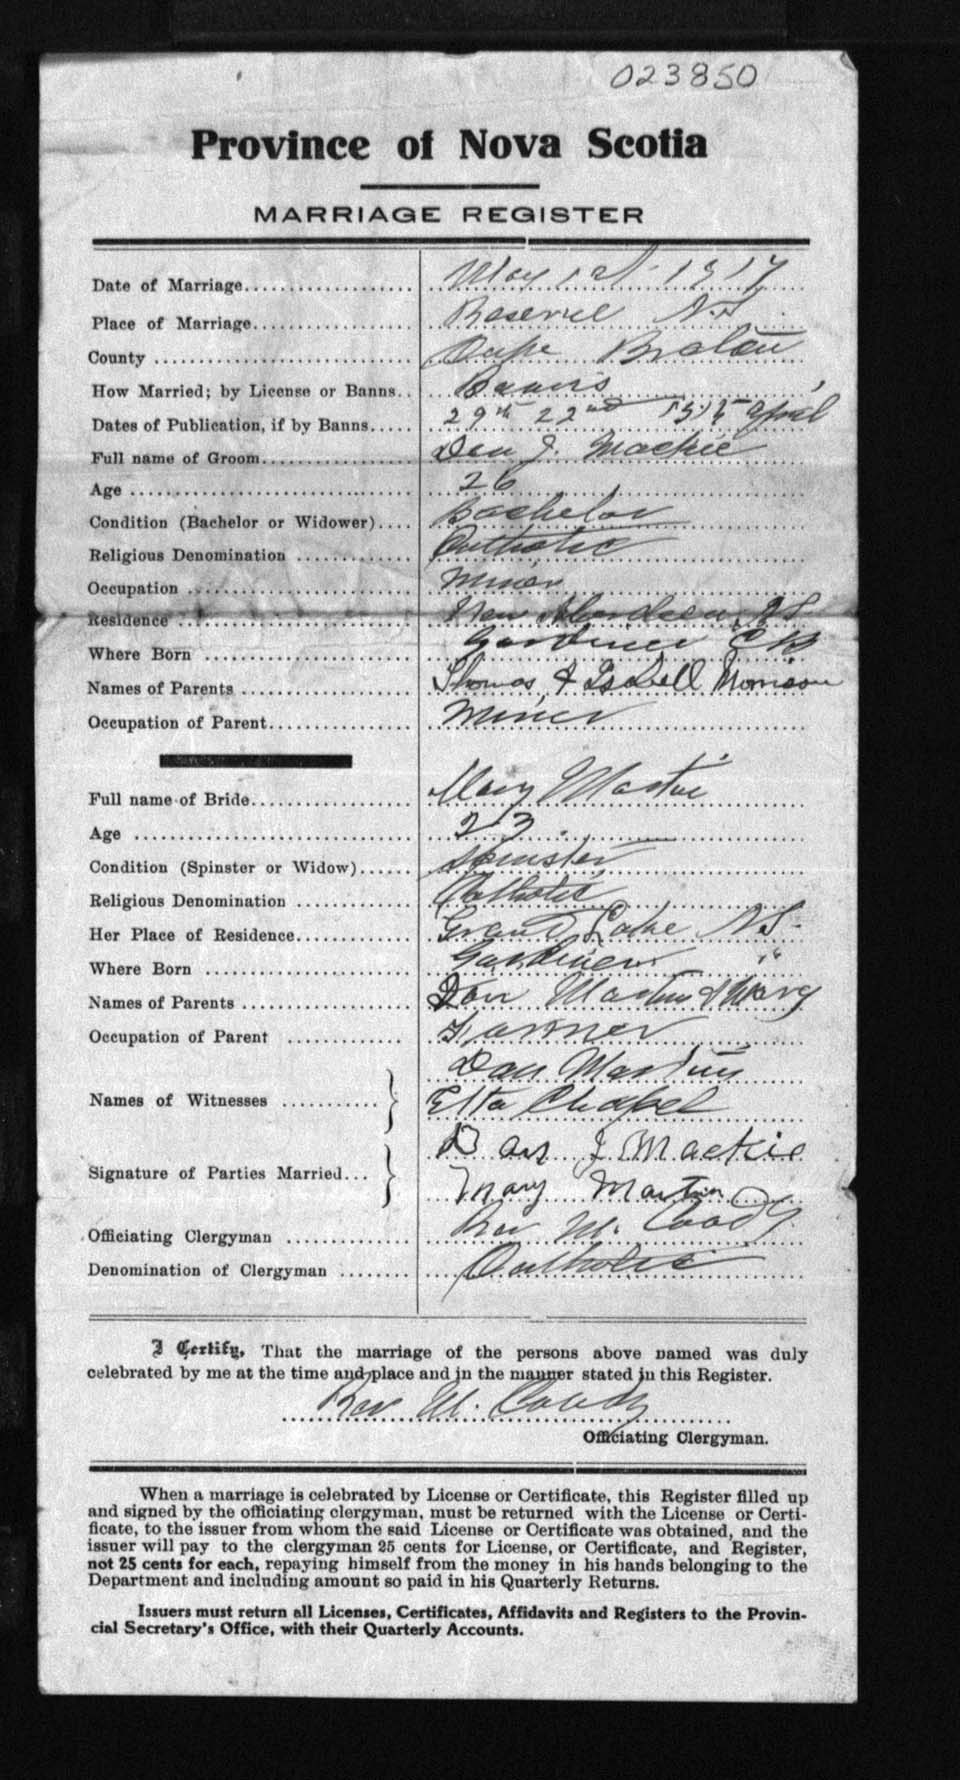 023850
Province of Nova Scotia
MARRIAGE REGISTER
Date of Marriage.................... May 1st 1917
Place of Marriage.................. Reserve N.S
County .............................. Cape Breton
How Married; by License or Banns.. Banns
Dates of Publication, if by Banns..... 29th 22nd 15th April
Full name of Groom.................. Dan J. Mackie
Age ................................. 26
Condition (Bachelor or Widower).... Bachelor
Religious Denomination ............. Catholic
Occupation .......................... Miner
Residence ........................... New Aberdeen, N.S
Where Born ......................... Gardiner C B
Names of Parents .................... Thomas & Isabell Morrison
Occupation of Parent................. Miner
Full name of Bride................... Mary Martin
Age ................................. 23.
Condition (Spinster or Widow)...... Spinster
Religious Denomination ............. Catholic
Her Place of Residence............. Grand Lake N.S.
Where Born ......................... Gardiner "
Names of Parents .................... Dan Martin & Mary
Occupation of Parent .............. Farmer
Dan Martin
Names of Witnesses ............ } Etta Chapel
Dan J Mackie
Signature of Parties Married... } Mary Martin
Officiating Clergyman ............... Rev M. Coady
Denomination of Clergyman ........ Catholic
I Certify, That the marriage of the persons above named was duly
celebrated by me at the time and place and in the manner stated in this Register.
Rev M. Coady
Officiating Clergyman.
When a marriage is celebrated by License or Certificate, this Register filled up
and signed by the officiating clergyman, must be returned with the License or Certi-
ficate, to the issuer from whom the said License or Certificate was obtained, and the
issuer will pay to the clergyman 25 cents for License, or Certificate, and Register,
not 25 cents for each, repaying himself from the money in his hands belonging to the
Department and including amount so paid in his Quarterly Returns.
Issuers must return all Licenses, Certificates, Affidavits and Registers to the Provin-
cial Secretary's Office, with their Quarterly Accounts.